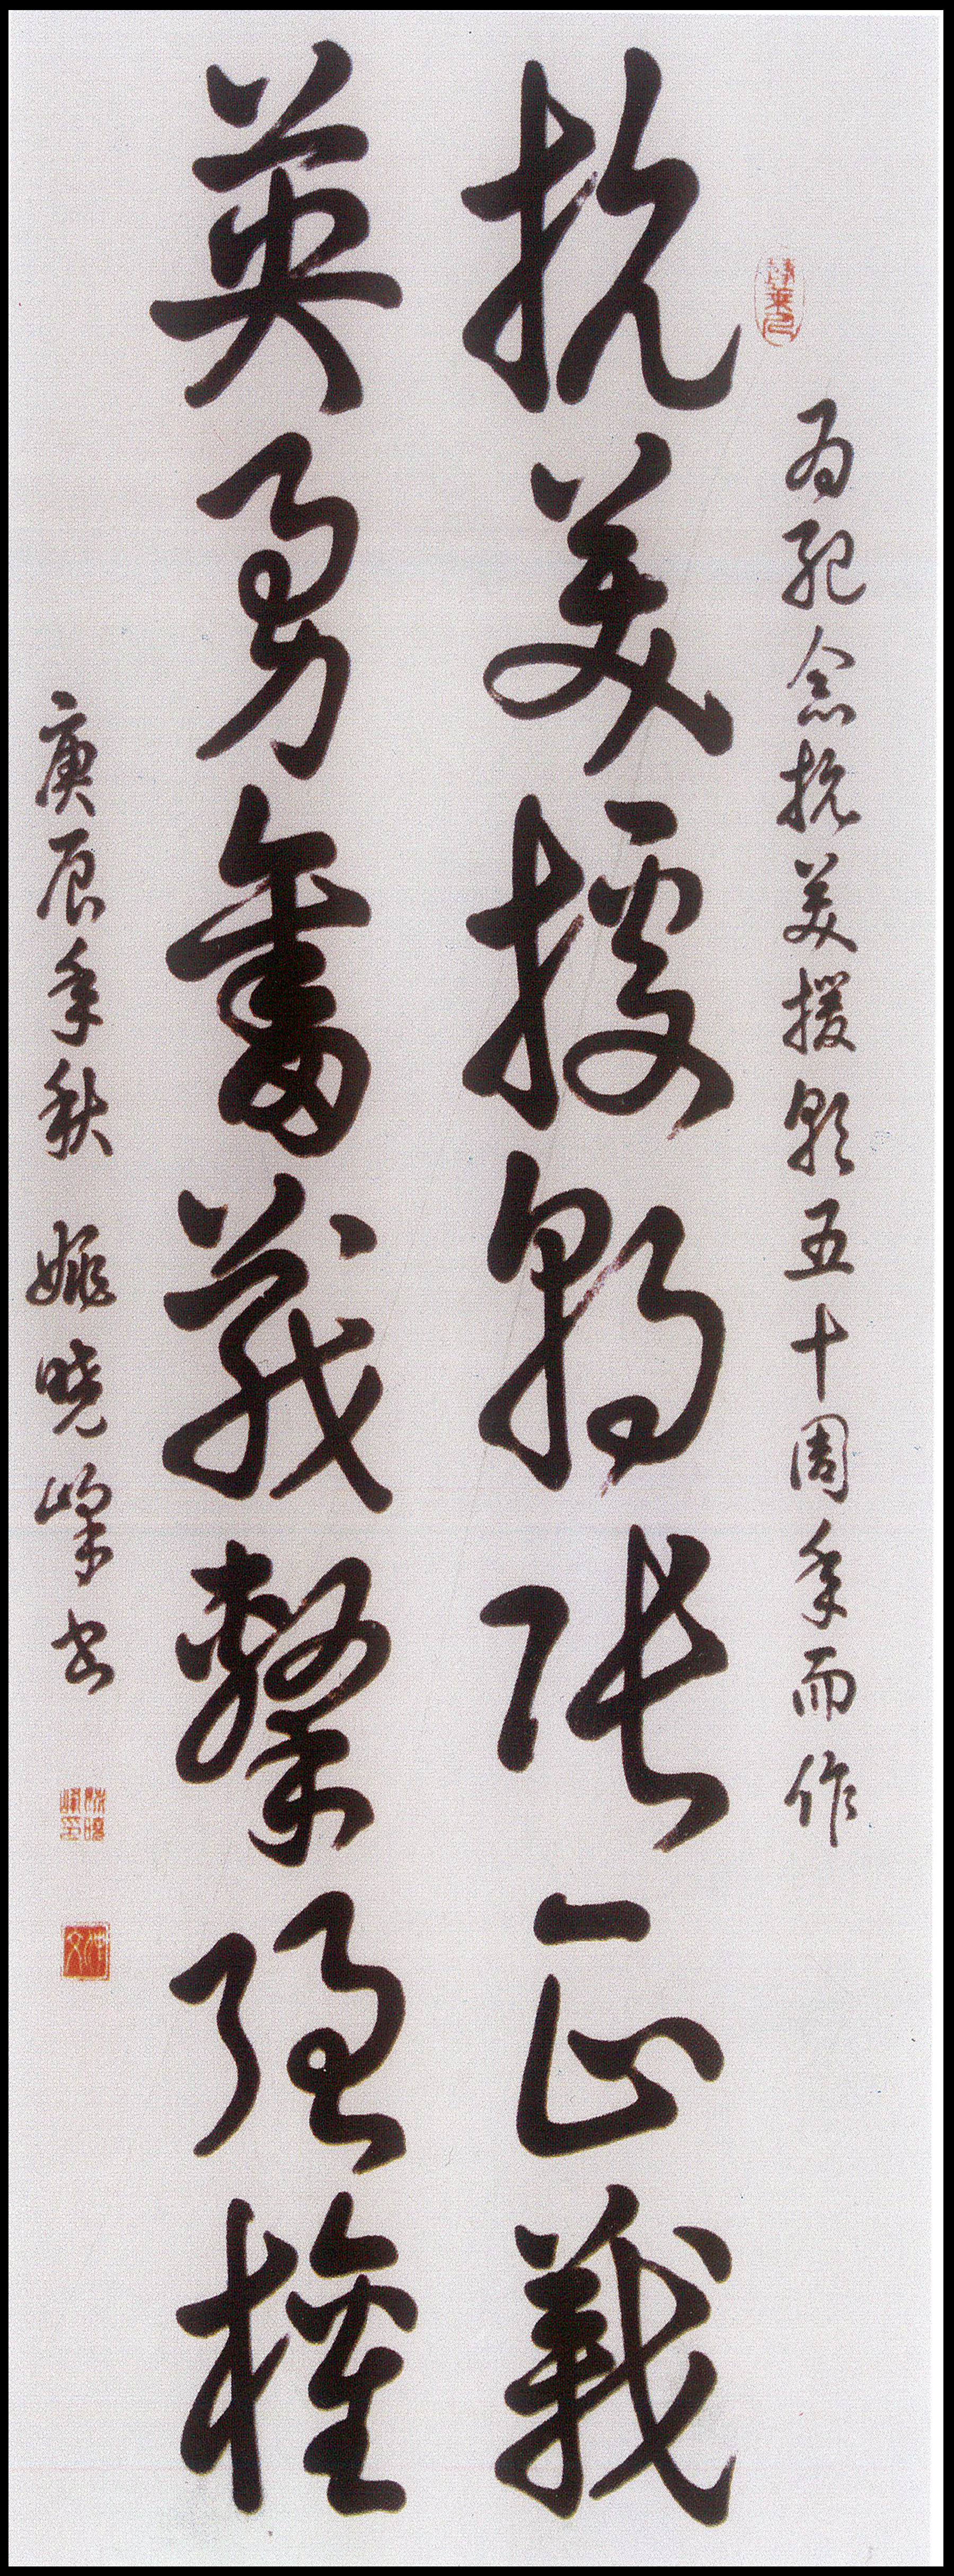 为纪念抗美援朝五十周年而作
抗美援朝張正義
英勇奮戰擊強權
庚辰年秋 姚晓峰书